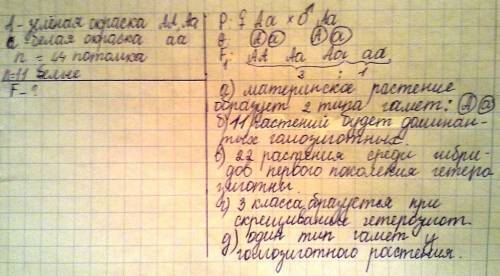 А - зелёная окраска АА, Аа
а - белая окраска аа
n = 44 потомка
n=11 белые
F - ?
P: ♀ Аа × ♂ Аа
g: А а А а
F1: АА Аа Аа аа
3 : 1
а) материнское растение
образует 2 типа гамет: А а
б) 11 растений будет доминан-
тных гомозиготных.
в) 22 растения среди гибри-
дов первого поколения гетеро
зиготны.
г) 3 класса образуется при
скрещивании гетерозигот.
д) один тип гамет у
гомозиготного растения.